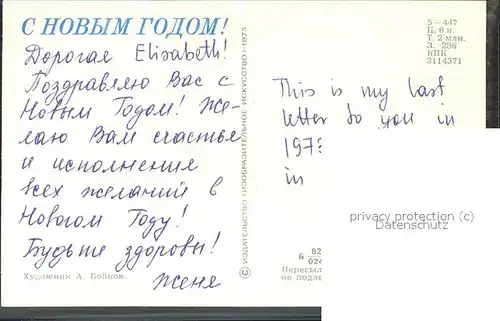 С НОВЫМ ГОДОМ!
Дорогая Elisabeth!
Поздравляю Вас с
Новым Годом! Же-
лаю Вам счастья
и исполнения
всех желаний в
Новогом Году!
Будьте здоровы!
Женя
Художник А. Бойков.
© ИЗДАТЕЛЬСТВО «ИЗОБРАЗИТЕЛЬНОЕ ИСКУССТВО» 1973
5—447
Ц. 6 к.
Т. 2 млн.
З. 236
КПК
3114371
This is my last
letter to you in
in
privacy protection (c)
Datenschutz
Б 82
024
Пересыл
не подле